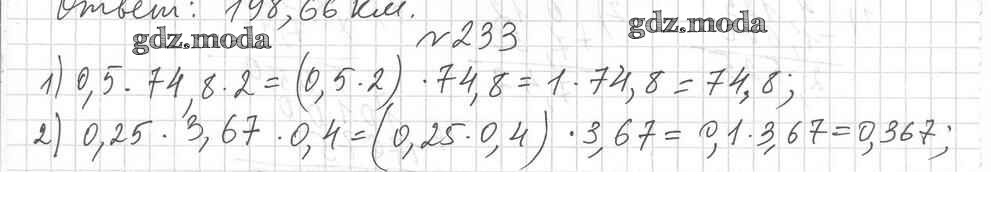 Ответ: 198,66 км.
gdz.moda
gdz.moda
№233
1) 0,5 · 74,8 · 2 = (0,5 · 2) · 74,8 = 1 · 74,8 = 74,8;
2) 0,25 · 3,67 · 0,4 = (0,25 · 0,4) · 3,67 = 0,1 · 3,67 = 0,367;